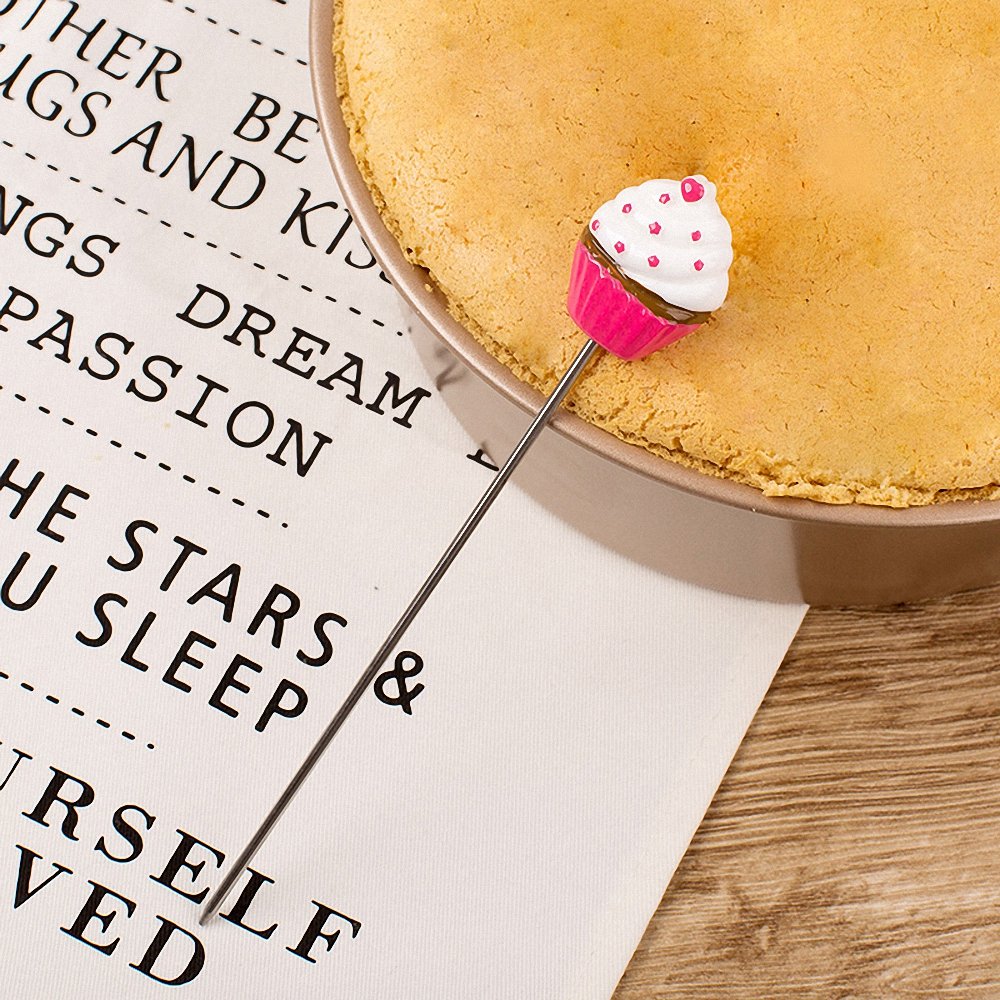 OTHER BE
UGS AND KIS
NGS DREAM
PASSION
HE STARS &
U SLEEP
URSELF
VED